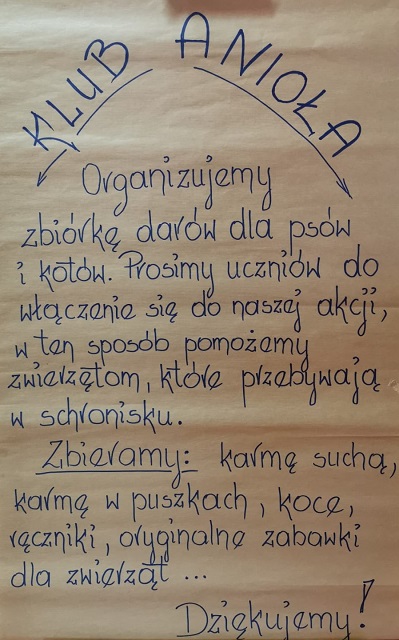 KLUB ANIOŁA
Organizujemy
zbiórkę darów dla psów
i kotów. Prosimy uczniów do
włączenie się do naszej akcji,
w ten sposób pomożemy
zwierzętom, które przebywają
w schronisku.
Zbieramy: karmę suchą,
karmę w puszkach, koce,
ręczniki, oryginalne zabawki
dla zwierząt ...
Dziękujemy!